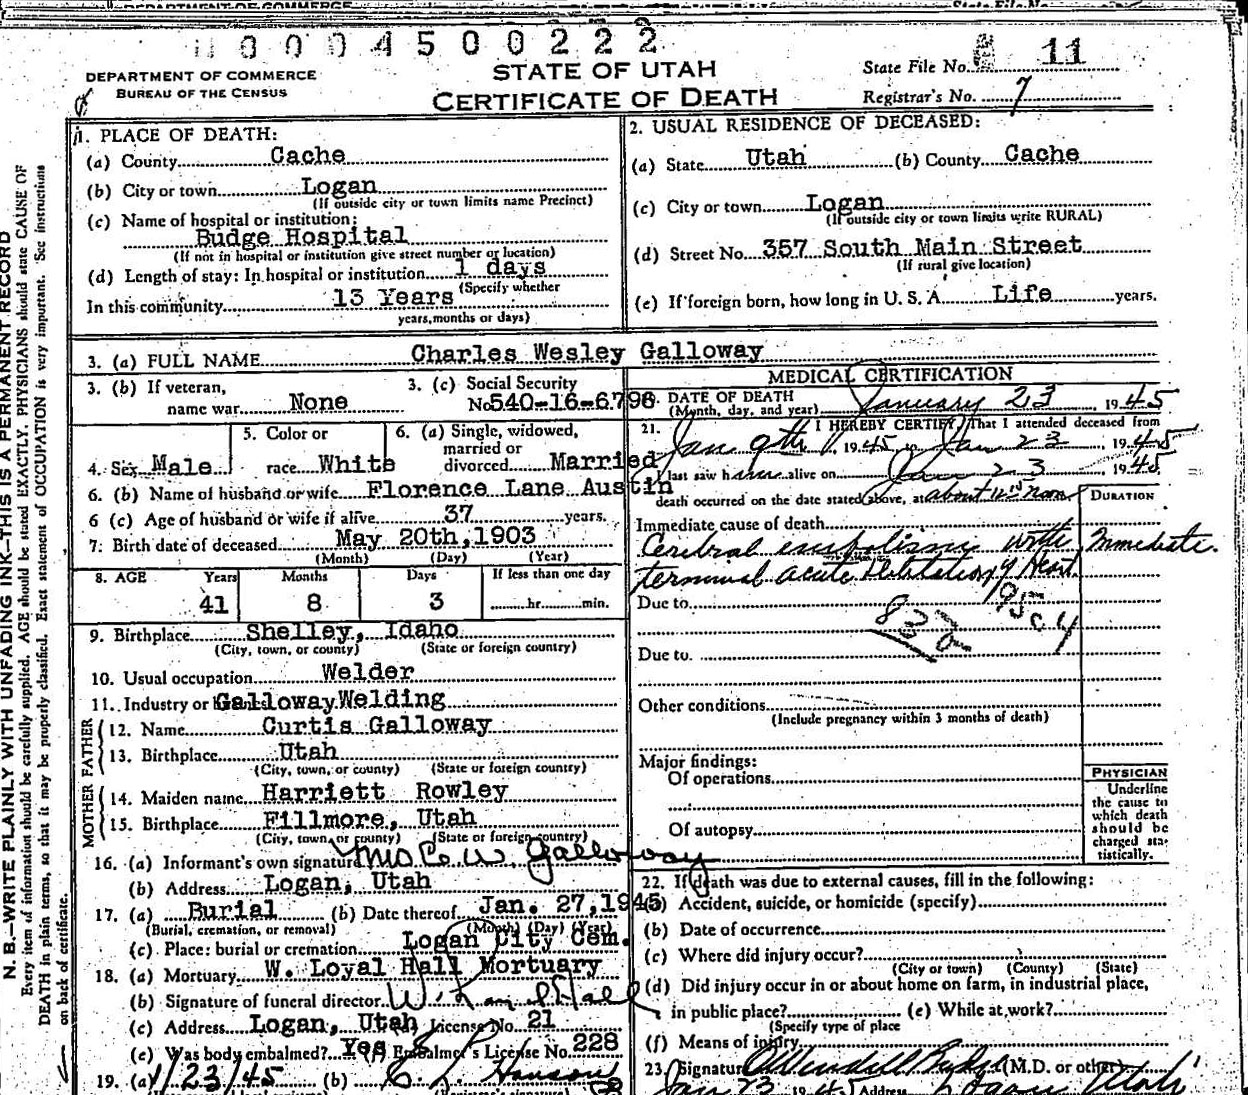 DEPARTMENT OF COMMERCE State File No.
0004500222
DEPARTMENT OF COMMERCE
BUREAU OF THE CENSUS
STATE OF UTAH
CERTIFICATE OF DEATH
State File No. 11
Registrar's No. 7
1. PLACE OF DEATH:
(a) County Cache
(b) City or town Logan
(If outside city or town limits name Precinct)
(c) Name of hospital or institution:
Budge Hospital
(If not in hospital or institution give street number or location)
(d) Length of stay: In hospital or institution 1 days
(Specify whether
In this community 13 Years
years, months or days)
2. USUAL RESIDENCE OF DECEASED:
(a) State Utah (b) County Cache
(c) City or town Logan
(If outside city or town limits write RURAL)
(d) Street No. 357 South Main Street
(If rural give location)
(e) If foreign born, how long in U. S. A. Life years.
3. (a) FULL NAME Charles Wesley Galloway
3. (b) If veteran,
name war None
3. (c) Social Security
No. 540-16-6798
4. Sex Male
5. Color or
race White
6. (a) Single, widowed,
married or
divorced Married
6. (b) Name of husband or wife Florence Lane Austin
6 (c) Age of husband or wife if alive 37 years.
7. Birth date of deceased May 20th, 1903
(Month) (Day) (Year)
8. AGE Years Months Days If less than one day
41 8 3 hr. min.
9. Birthplace Shelley, Idaho
(City, town, or county) (State or foreign country)
10. Usual occupation Welder
11. Industry or Galloway Welding
FATHER
12. Name Curtis Galloway
13. Birthplace Utah
(City, town, or county) (State or foreign country)
MOTHER
14. Maiden name Harriett Rowley
15. Birthplace Fillmore, Utah
(City, town, or county) (State or foreign country)
16. (a) Informant's own signature Mrs C. W. Galloway
(b) Address Logan, Utah
17. (a) Burial (b) Date thereof Jan. 27, 1945
(Burial, cremation, or removal) (Month) (Day) (Year)
(c) Place: burial or cremation Logan City Cem.
18. (a) Mortuary W. Loyal Hall Mortuary
(b) Signature of funeral director W. Loyal Hall
(c) Address Logan, Utah License No. 21
(e) Was body embalmed? Yes Embalmer's License No. 228
19. (a) 1/23/45 (b) Hanson
MEDICAL CERTIFICATION
DATE OF DEATH
(Month, day, and year) January 23, 1945
21. I HEREBY CERTIFY, That I attended deceased from
Jan 9th, 1945, Jan 23, 1945
last saw him alive on Jan 23, 1945
death occurred on the date stated above, at about 12 noon
DURATION
Immediate cause of death
Cerebral embolism with Immediate.
terminal acute Dilitation of Heart
Due to 95c4
832
Due to.
Other conditions
(Include pregnancy within 3 months of death)
Major findings:
Of operations
Of autopsy
PHYSICIAN
Underline
the cause to
which death
should be
charged sta-
tistically.
22. If death was due to external causes, fill in the following:
(a) Accident, suicide, or homicide (specify)
(b) Date of occurrence
(c) Where did injury occur?
(City or town) (County) (State)
(d) Did injury occur in or about home on farm, in industrial place,
in public place? (e) While at work?
(Specify type of place
(f) Means of injury
23. Signature O Wendell Budge (M.D. or other)
Jan 23 1945 Address Logan Utah
N. B.—WRITE PLAINLY WITH UNFADING INK—THIS IS A PERMANENT RECORD
Every item of information should be carefully supplied. AGE should be stated EXACTLY. PHYSICIANS should state CAUSE OF
DEATH in plain terms, so that it may be properly classified. Exact statement of OCCUPATION is very important. See instructions
on back of certificate.